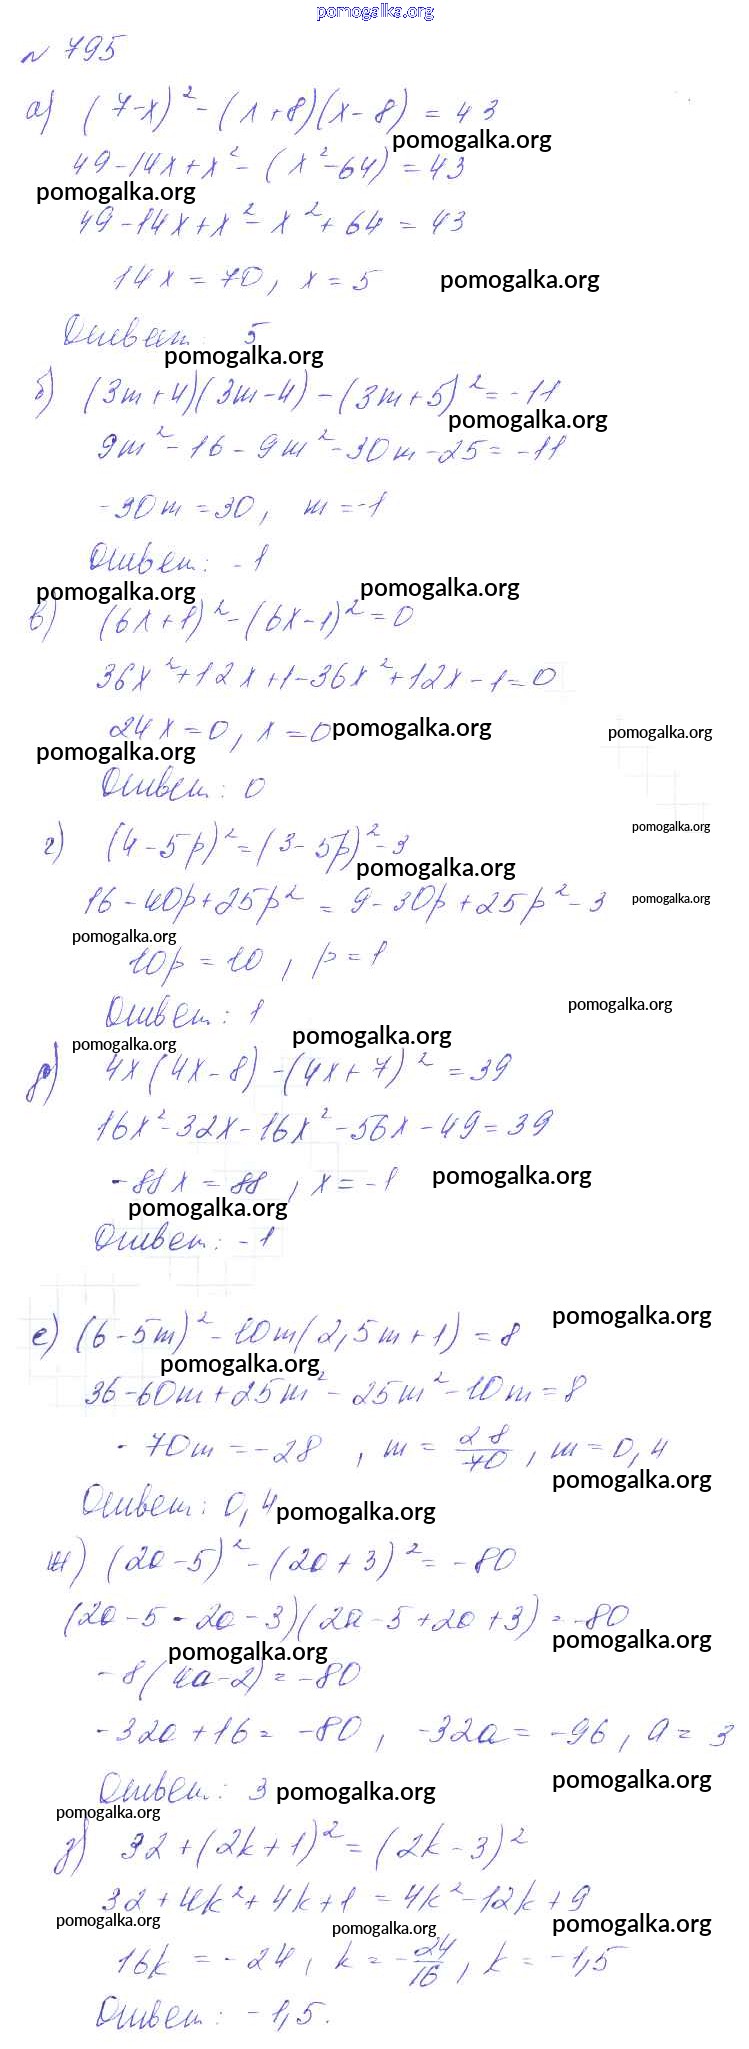 pomogalka.org
№ 795
а) (7-x)² - (x+8)(x-8) = 43
pomogalka.org
49-14x+x² - (x²-64) = 43
pomogalka.org
49-14x+x²-x²+64 = 43
14x = 70, x = 5 pomogalka.org
Ответ: 5
pomogalka.org
б) (3m+4)(3m-4) - (3m+5)² = -11
pomogalka.org
9m²-16-9m²-30m-25 = -11
-30m = 30, m = -1
Ответ: -1
pomogalka.org pomogalka.org
в) (6x+1)² - (6x-1)² = 0
36x²+12x+1-36x²+12x-1=0
24x=0, x=0 pomogalka.org pomogalka.org
pomogalka.org
Ответ: 0
г) (4-5p)² = (3-5p)²-3 pomogalka.org
pomogalka.org
16-40p+25p² = 9-30p+25p²-3 pomogalka.org
pomogalka.org
10p = 10, p = 1
Ответ: 1 pomogalka.org
pomogalka.org pomogalka.org
д) 4x(4x-8) - (4x+7)² = 39
16x²-32x-16x²-56x-49=39
-88x = 88, x = -1 pomogalka.org
pomogalka.org
Ответ: -1
pomogalka.org
е) (6-5m)² - 10m(2,5m+1) = 8
pomogalka.org
36-60m+25m²-25m²-10m=8
-70m = -28, m = 28/70, m = 0,4
pomogalka.org
Ответ: 0,4 pomogalka.org
ж) (2a-5)² - (2a+3)² = -80
(2a-5-2a-3)(2a-5+2a+3) = -80
pomogalka.org pomogalka.org
-8(4a-2) = -80
-32a+16 = -80, -32a = -96, a = 3
Ответ: 3 pomogalka.org pomogalka.org
pomogalka.org
з) 32+(2k+1)² = (2k-3)²
32+4k²+4k+1 = 4k²-12k+9
pomogalka.org pomogalka.org pomogalka.org
16k = -24, k = -24/16, k = -1,5
Ответ: -1,5.
pomogalka.org